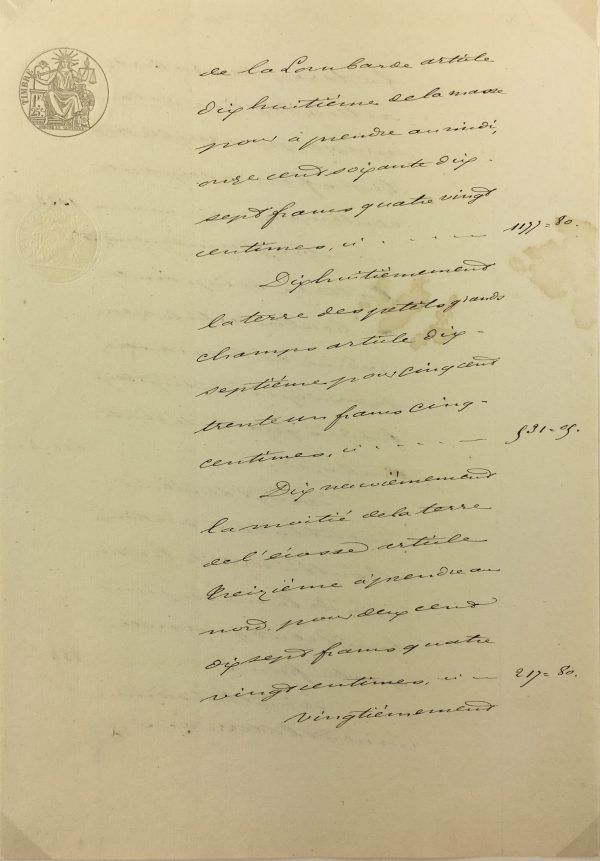 TIMBRE
de la Lombarde article
dixhuitième de la masse
pour à prendre au midi,
onze cent soixante dix-
sept francs quatre vingt
centimes, ci - - - - 1177=80.
Dixhuitièmement
la terre des petits grands
champs article dix-
septième pour cinq cent
trente un francs cinq-
centimes, ci - - - - 531=05.
Dix neuvièmement
la moitié de la terre
de l'écosse article
treizième à prendre au
nord, pour deux cent
dix sept francs quatre
vingt centimes, ci - 217=80.
vingtièmement